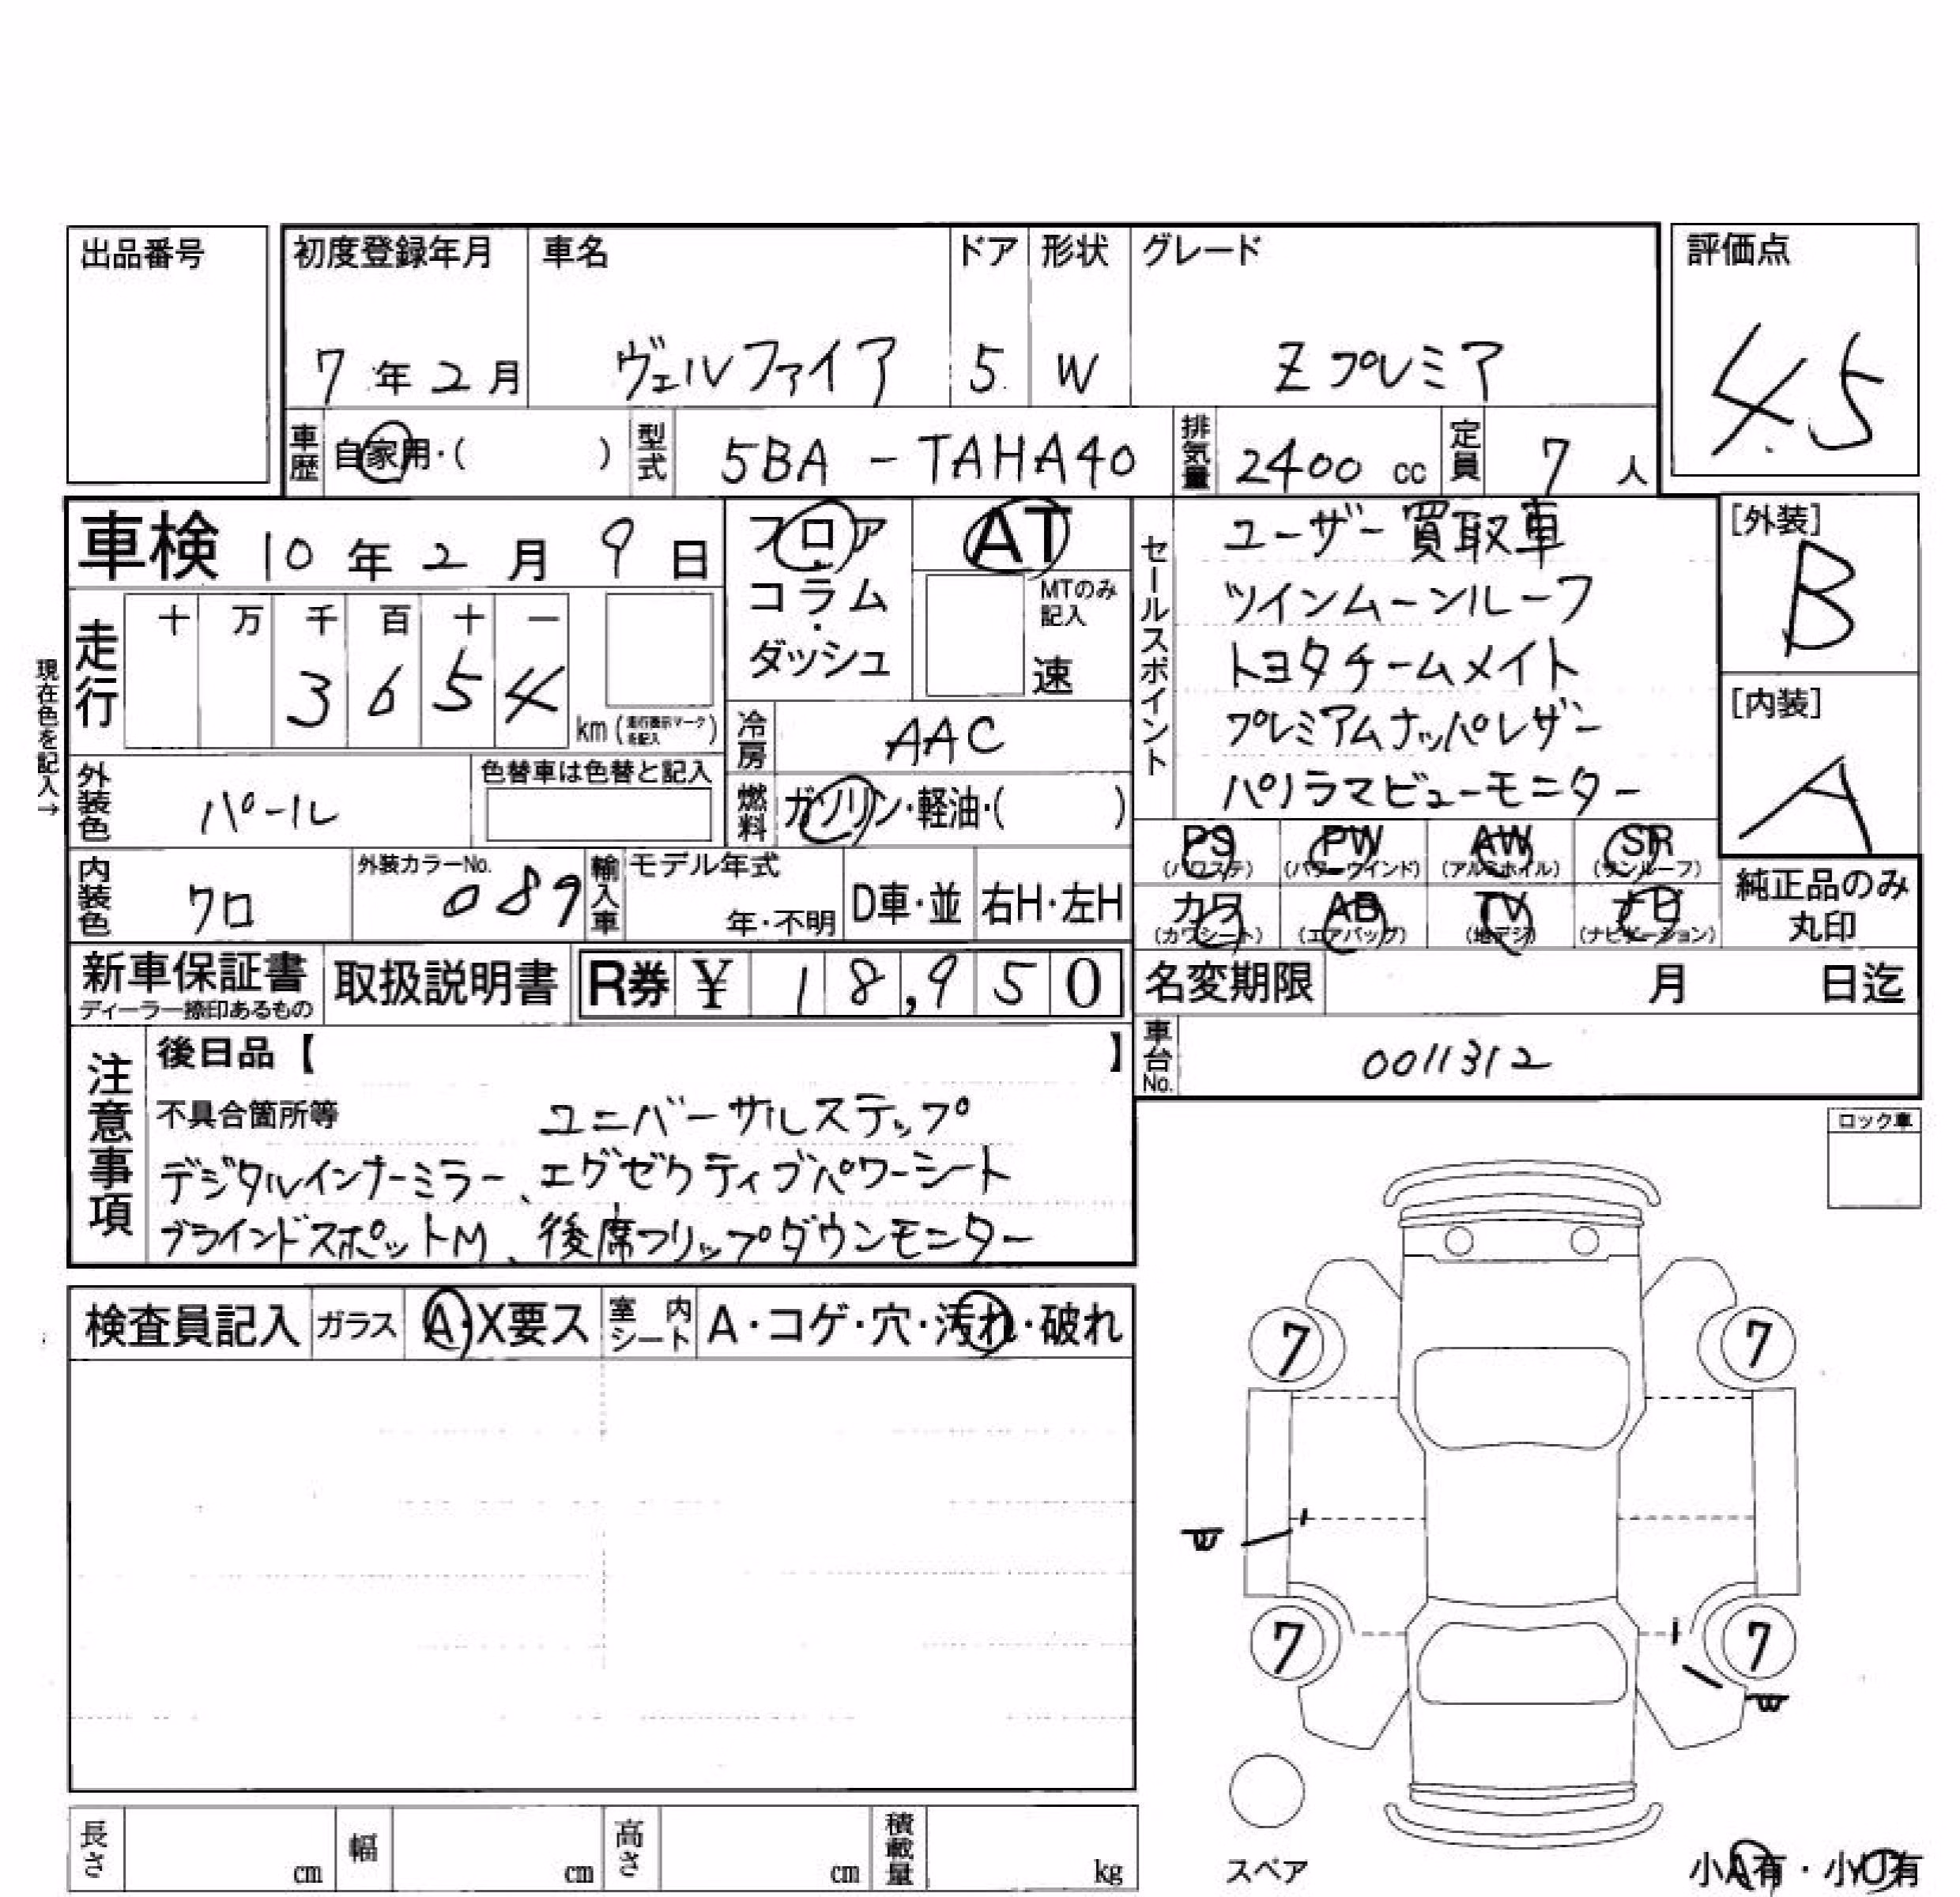 出品番号
初度登録年月 車名 ドア 形状 グレード 評価点
7年2月 ヴェルファイア 5 W Zプレミア 4.5
車歴 自家用・( ) 型式 5BA-TAHA40 排気量 2400cc 定員 7人
車検 10年2月9日
フロア・コラム・ダッシュ
AT
MTのみ記入
速
セールスポイント
ユーザー買取車
ツインムーンルーフ
トヨタチームメイト
プレミアムナッパレザー
パノラマビューモニター
[外装]
B
[内装]
A
現在色を記入→
走行 十 万 千 百 十 一
3 6 5 4 km (走行表示マークを記入)
冷房 AAC
外装色 パール 色替車は色替と記入
燃料 ガソリン・軽油・( )
PS PW AW SR
(パワステ) (パワーウインド) (アルミホイル) (サンルーフ)
カワ AB TV ナビ
(カワシート) (エアバッグ) (地デジ) (ナビゲーション)
純正品のみ
丸印
内装色 クロ 外装カラーNo. 089 輸入車 モデル年式 年・不明 D車・並 右H・左H
新車保証書
ディーラー捺印あるもの
取扱説明書 R券 ¥ 18,950
名変期限 月 日迄
車台No. 0011312
注意事項
後日品【 】
不具合箇所等 ユニバーサルステップ
デジタルインナーミラー、エグゼクティブパワーシート
ブラインドスポットM、後席フリップダウンモニター
ロック車
検査員記入 ガラス A・X要ス 室内シート A・コゲ・穴・汚れ・破れ
7 7
7 7
スペア
小A有・小U有
長さ cm 幅 cm 高さ cm 積載量 kg